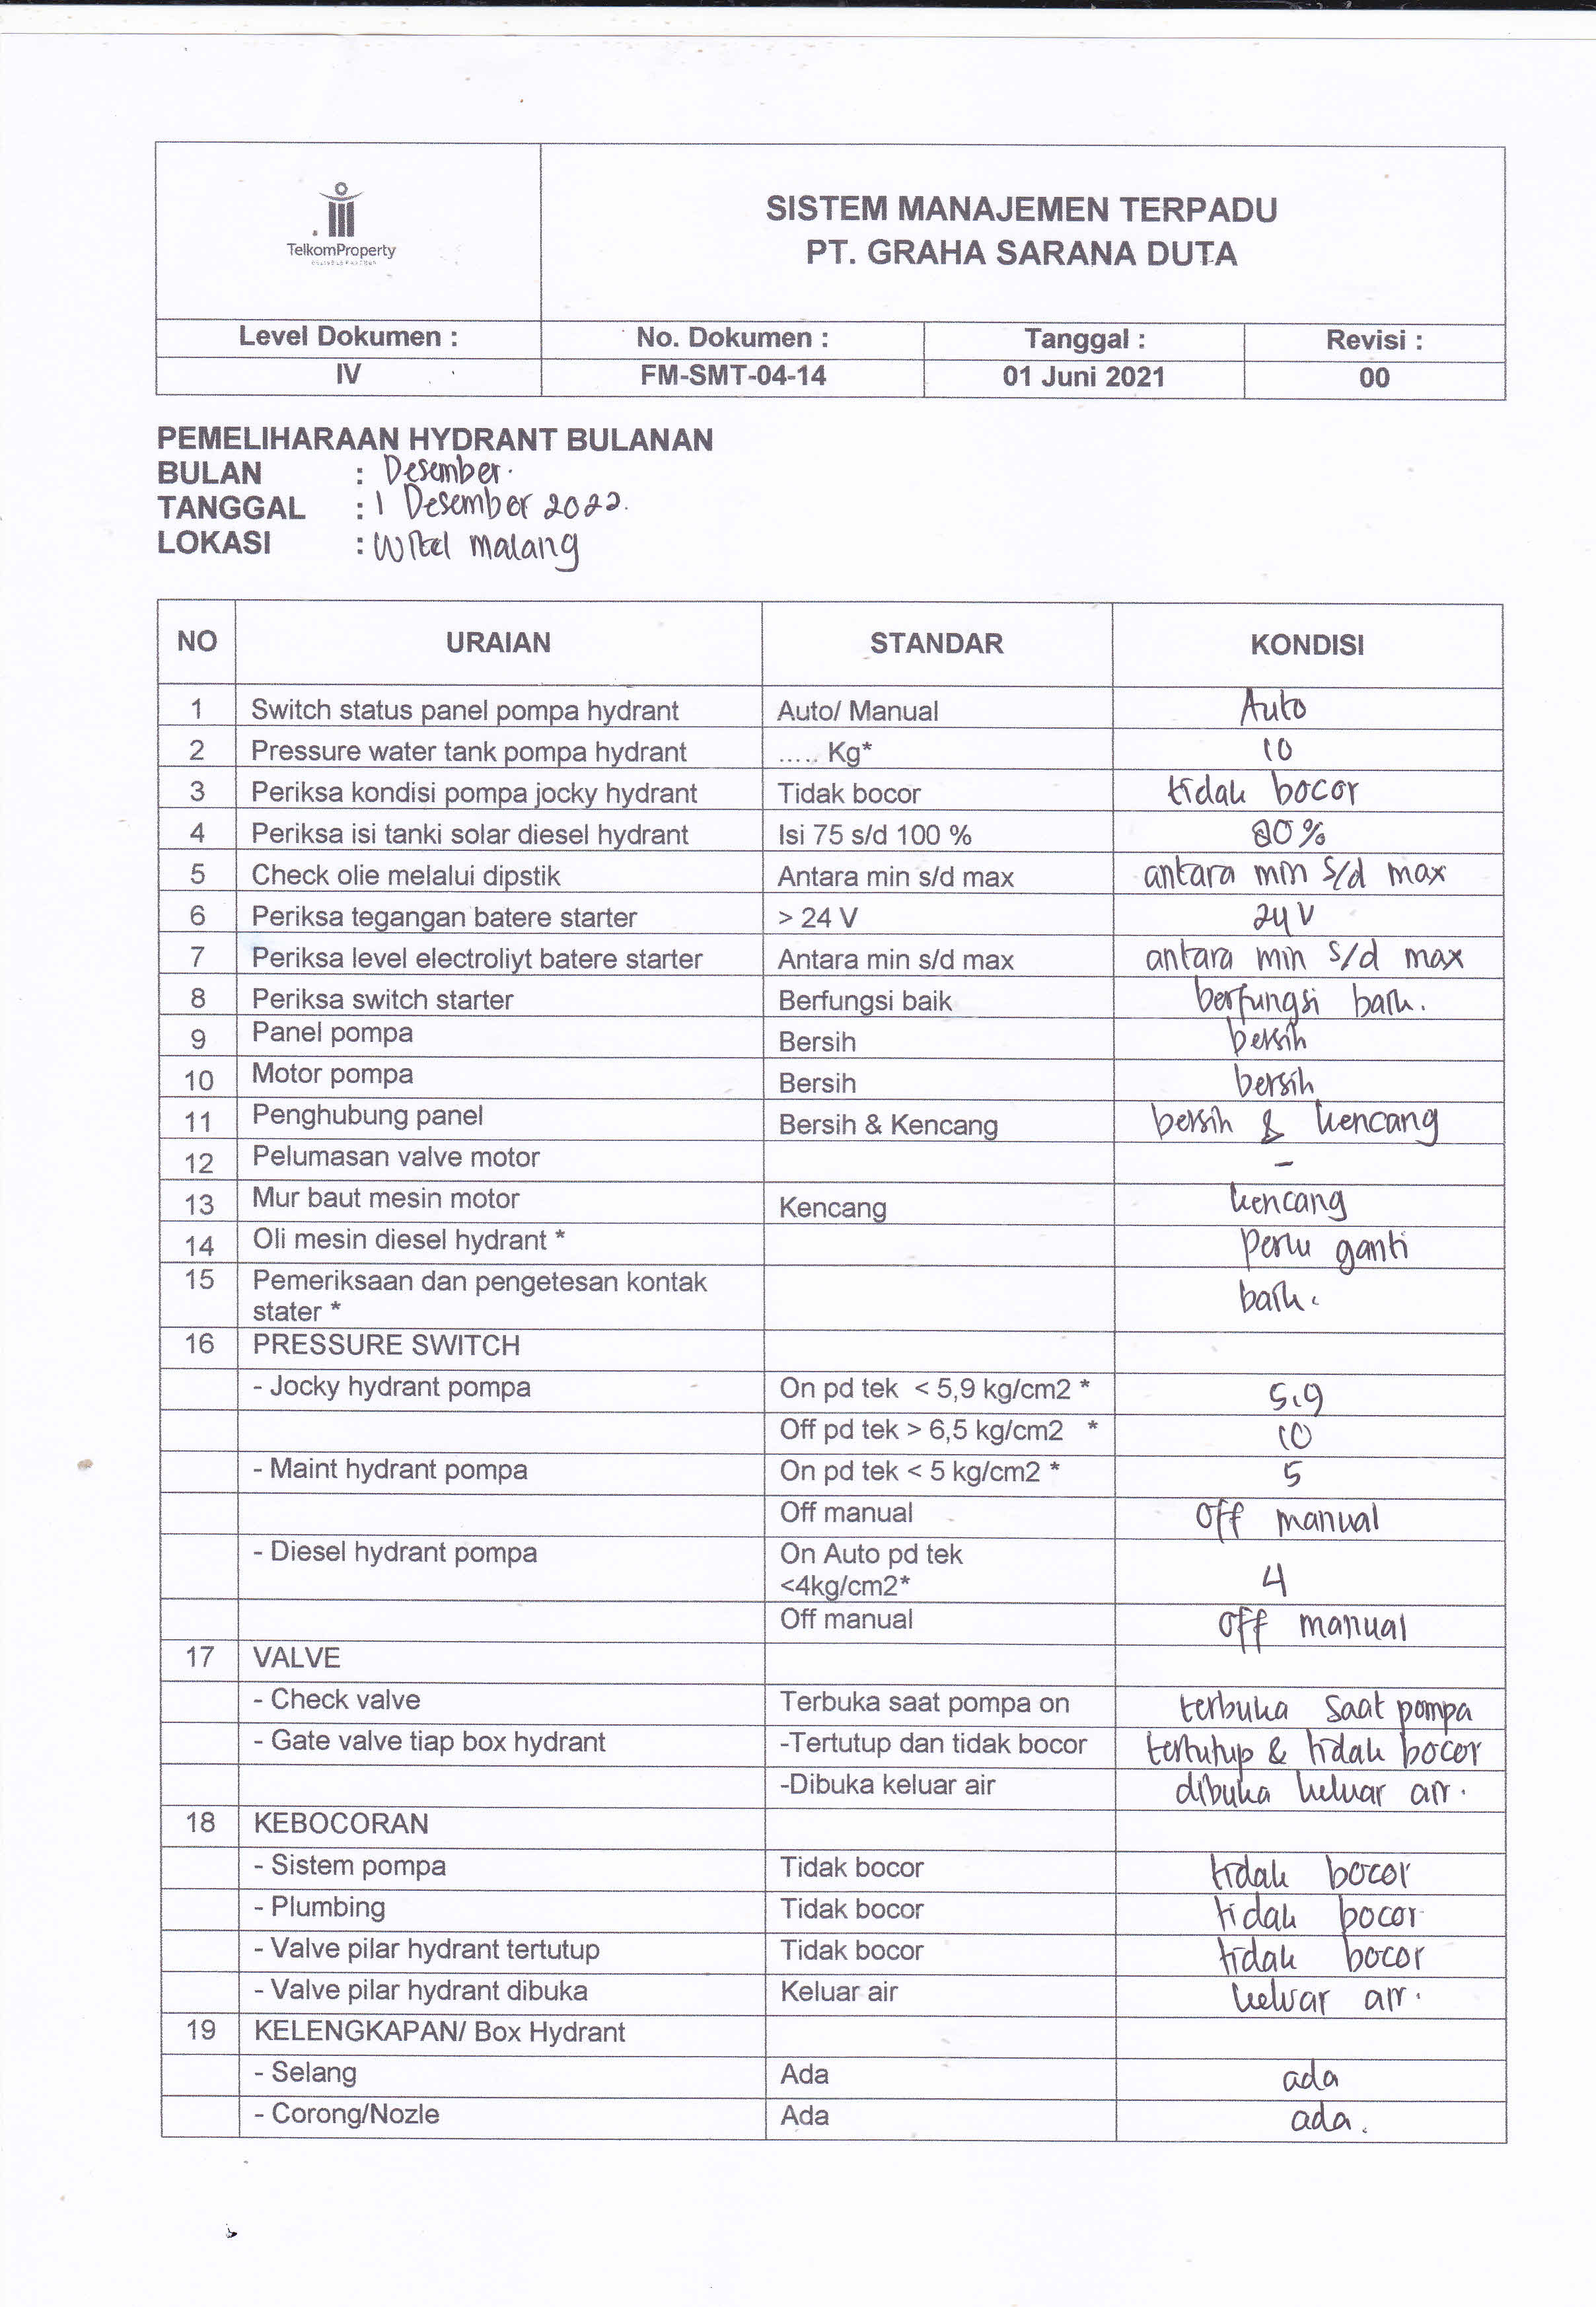 TelkomProperty
SISTEM MANAJEMEN TERPADU
PT. GRAHA SARANA DUTA
Level Dokumen : No. Dokumen : Tanggal : Revisi :
IV FM-SMT-04-14 01 Juni 2021 00
PEMELIHARAAN HYDRANT BULANAN
BULAN : Desember.
TANGGAL : 1 Desember 2022.
LOKASI : Witel malang
NO URAIAN STANDAR KONDISI
1 Switch status panel pompa hydrant Auto/ Manual Auto
2 Pressure water tank pompa hydrant ..... Kg* 10
3 Periksa kondisi pompa jocky hydrant Tidak bocor tidak bocor
4 Periksa isi tanki solar diesel hydrant Isi 75 s/d 100 % 80%
5 Check olie melalui dipstik Antara min s/d max antara min s/d max
6 Periksa tegangan batere starter > 24 V 24 V
7 Periksa level electroliyt batere starter Antara min s/d max antara min s/d max
8 Periksa switch starter Berfungsi baik berfungsi baik.
9 Panel pompa Bersih bersih
10 Motor pompa Bersih bersih
11 Penghubung panel Bersih & Kencang bersih & kencang
12 Pelumasan valve motor -
13 Mur baut mesin motor Kencang kencang
14 Oli mesin diesel hydrant * perlu ganti
15 Pemeriksaan dan pengetesan kontak
stater * baik.
16 PRESSURE SWITCH
- Jocky hydrant pompa On pd tek < 5,9 kg/cm2 * 5,9
Off pd tek > 6,5 kg/cm2 * 10
- Maint hydrant pompa On pd tek < 5 kg/cm2 * 5
Off manual Off manual
- Diesel hydrant pompa On Auto pd tek
<4kg/cm2* 4
Off manual Off manual
17 VALVE
- Check valve Terbuka saat pompa on terbuka saat pompa
- Gate valve tiap box hydrant -Tertutup dan tidak bocor tertutup & tidak bocor
-Dibuka keluar air dibuka keluar air.
18 KEBOCORAN
- Sistem pompa Tidak bocor tidak bocor
- Plumbing Tidak bocor tidak bocor
- Valve pilar hydrant tertutup Tidak bocor tidak bocor
- Valve pilar hydrant dibuka Keluar air keluar air.
19 KELENGKAPAN/ Box Hydrant
- Selang Ada ada
- Corong/Nozle Ada ada.